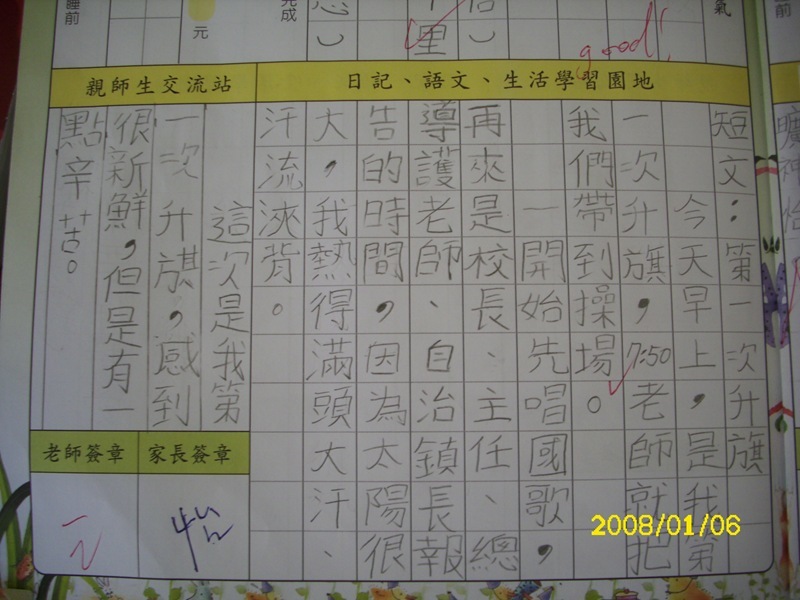 睡前
元
完成
氣
里
good!
日記、語文、生活學習園地
親師生交流站
短文：第一次升旗
今天早上，是我第
一次升旗，7:50老師就把
我們帶到操場。
一開始先唱國歌，
再來是校長、主任、總
導護老師、自治鎮長報
告的時間，因為太陽很
大，我熱得滿頭大汗、
汗流浹背。
這次是我第
一次升旗，感到
很新鮮，但是有一
點辛苦。
家長簽章
老師簽章
怡
2008/01/06